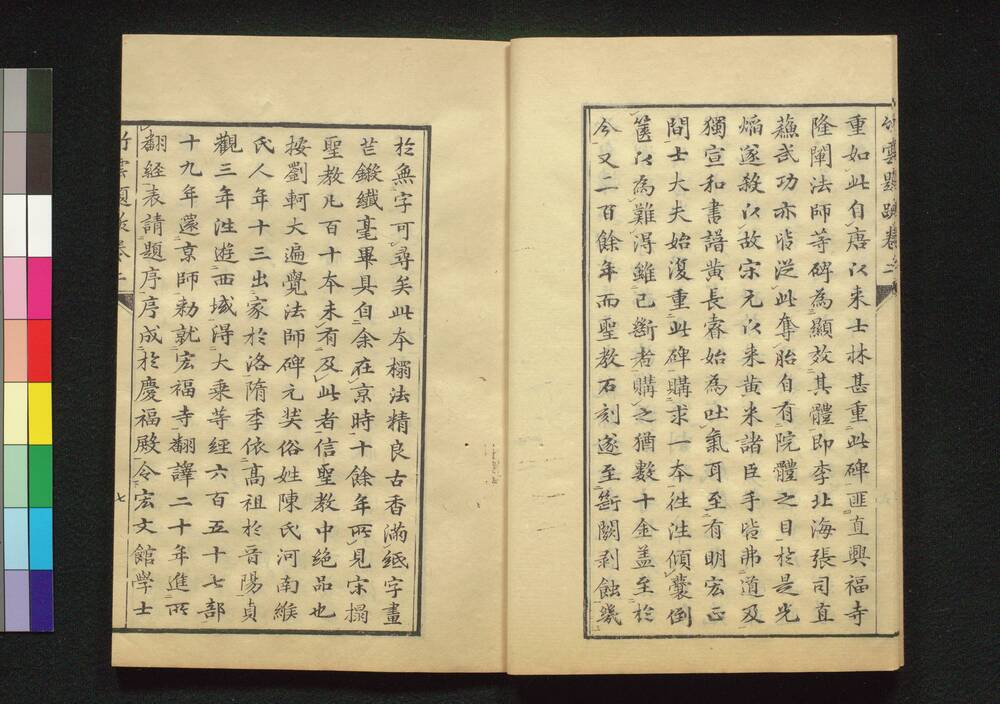 竹雲題跋卷二
重如此自唐以來士林甚重此碑匪直興福寺
隆闡法師等碑為顯效其體即李北海張司直
蘇武功亦皆從此奪胎自有院體之目於是光
焰遂殺以故宋元以來黃米諸臣手皆弗道及
獨宣和書譜黃長睿始為吐氣耳至有明宏正
間士大夫始復重此碑購求一本往往傾囊倒
篋以為難得雖已斷者購之猶數十金蓋至於
今又二百餘年而聖教石刻遂至斷闕剥蝕幾
於無字可尋矣此本榻法精良古香滿紙字畫
芒鍛纖毫畢具自余在京時十餘年所見宋搨
聖教凡百十本未有及此者信聖教中絶品也
按劉軻大遍覺法師碑元奘俗姓陳氏河南緱
氏人年十三出家於洛隋季依高祖於晉陽貞
觀三年往遊西域得大乘等經六百五十七部
十九年還京師勅就宏福寺翻譯二十年進所
翻經表請題序序成於慶福殿令宏文館學士
竹雲題跋卷二
七